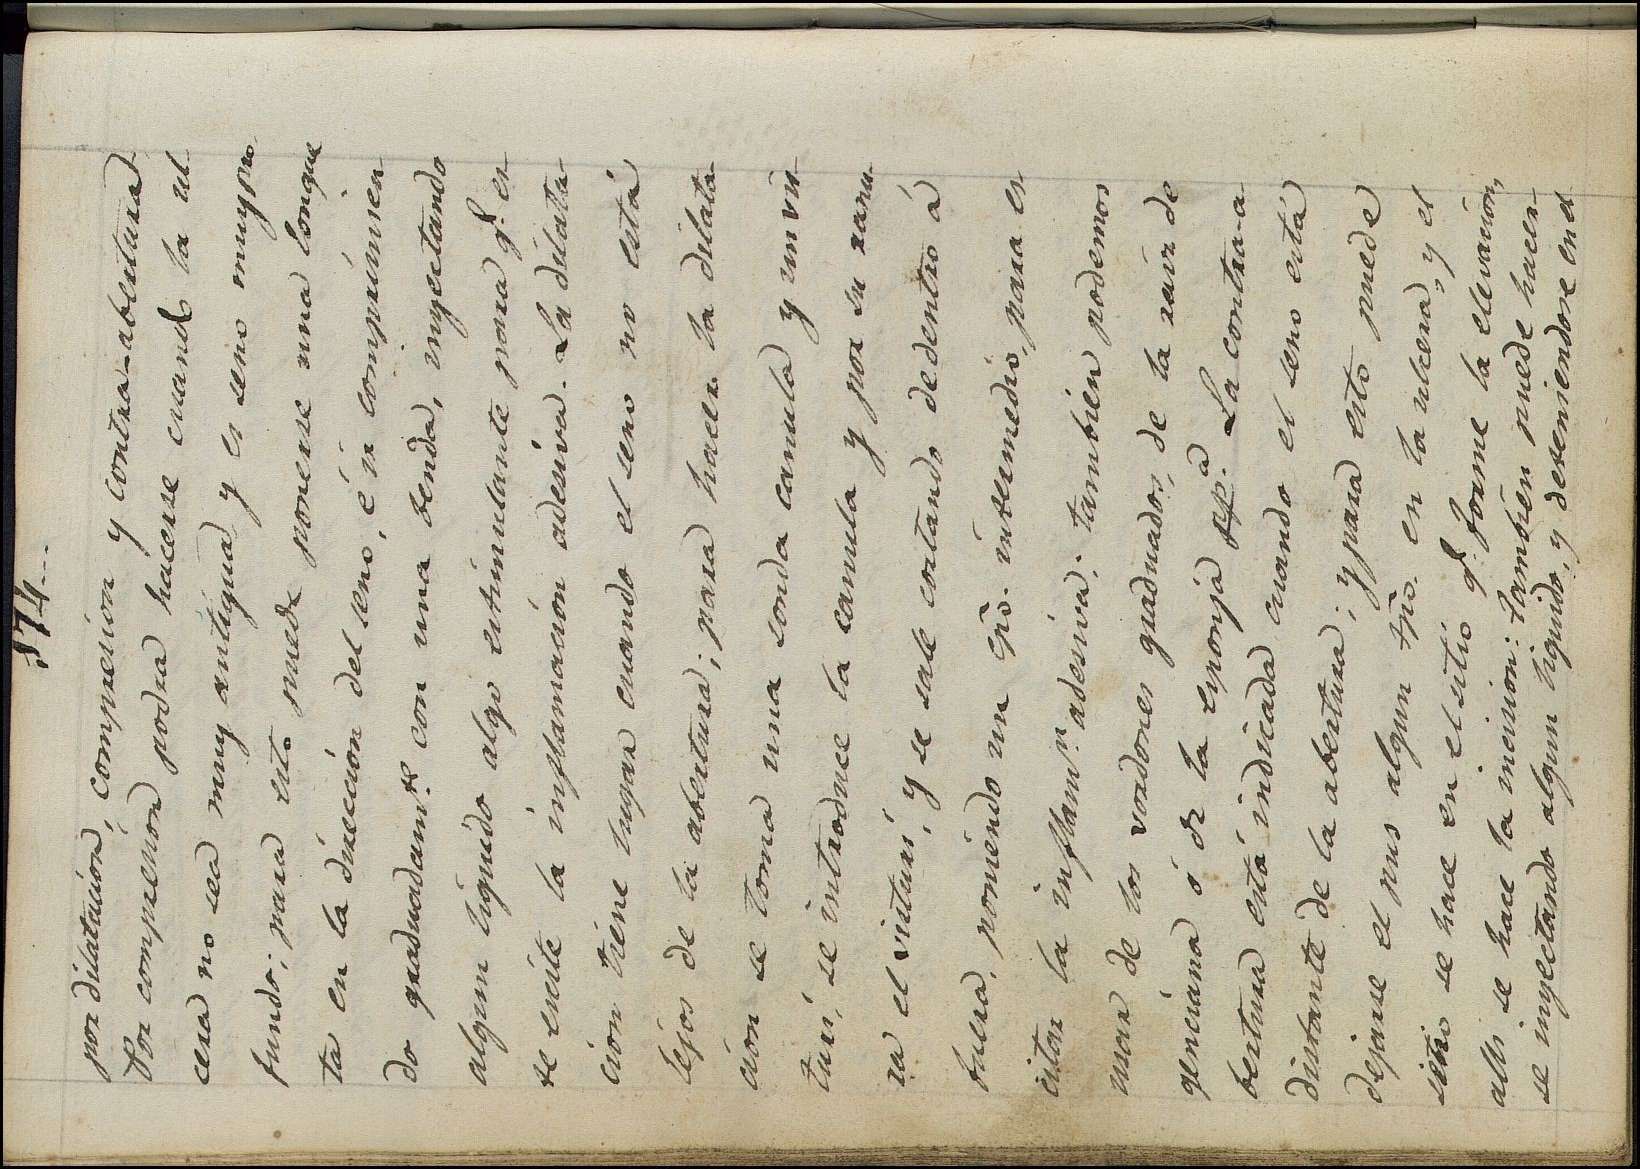 574...
por dilatacion, compresion y contra-abertura
Por compresion podra hacerse cuando la ul-
cera no sea muy antigua y el seno muy pro-
fundo; para esto puede ponerse una longue
ta en la direccion del seno, é ir comprimien
do graduadam.te con una benda, inyectando
algun liquido algo estimulante para q.e es
te exite la inflamacion adesiva. La dilata
cion tiene lugar cuando el seno no está
lejos de la abertura; para hacer la dilata
cion se toma una sonda canula y un vis
turi, se introduce la canula y por su ranu
ra el visturi, y se sale cortando de dentro á
fuera, poniendo un cpo. intermedio, para es
citar la inflam.n adesiva; tambien podemos
usar de los vordones graduados, de la raiz de
genciana ó de la esponja pp.a La contra-a
bertura está indicada cuando el seno está
distante de la abertura; y para esto puede
dejarse el pus algun tpo. en la ulcera, y el
sitio se hace en el sitio q.e forme la elevacion,
alli se hace la incision: tambien puede hacer-
se inyectando algun liquido, y deteniendose en el